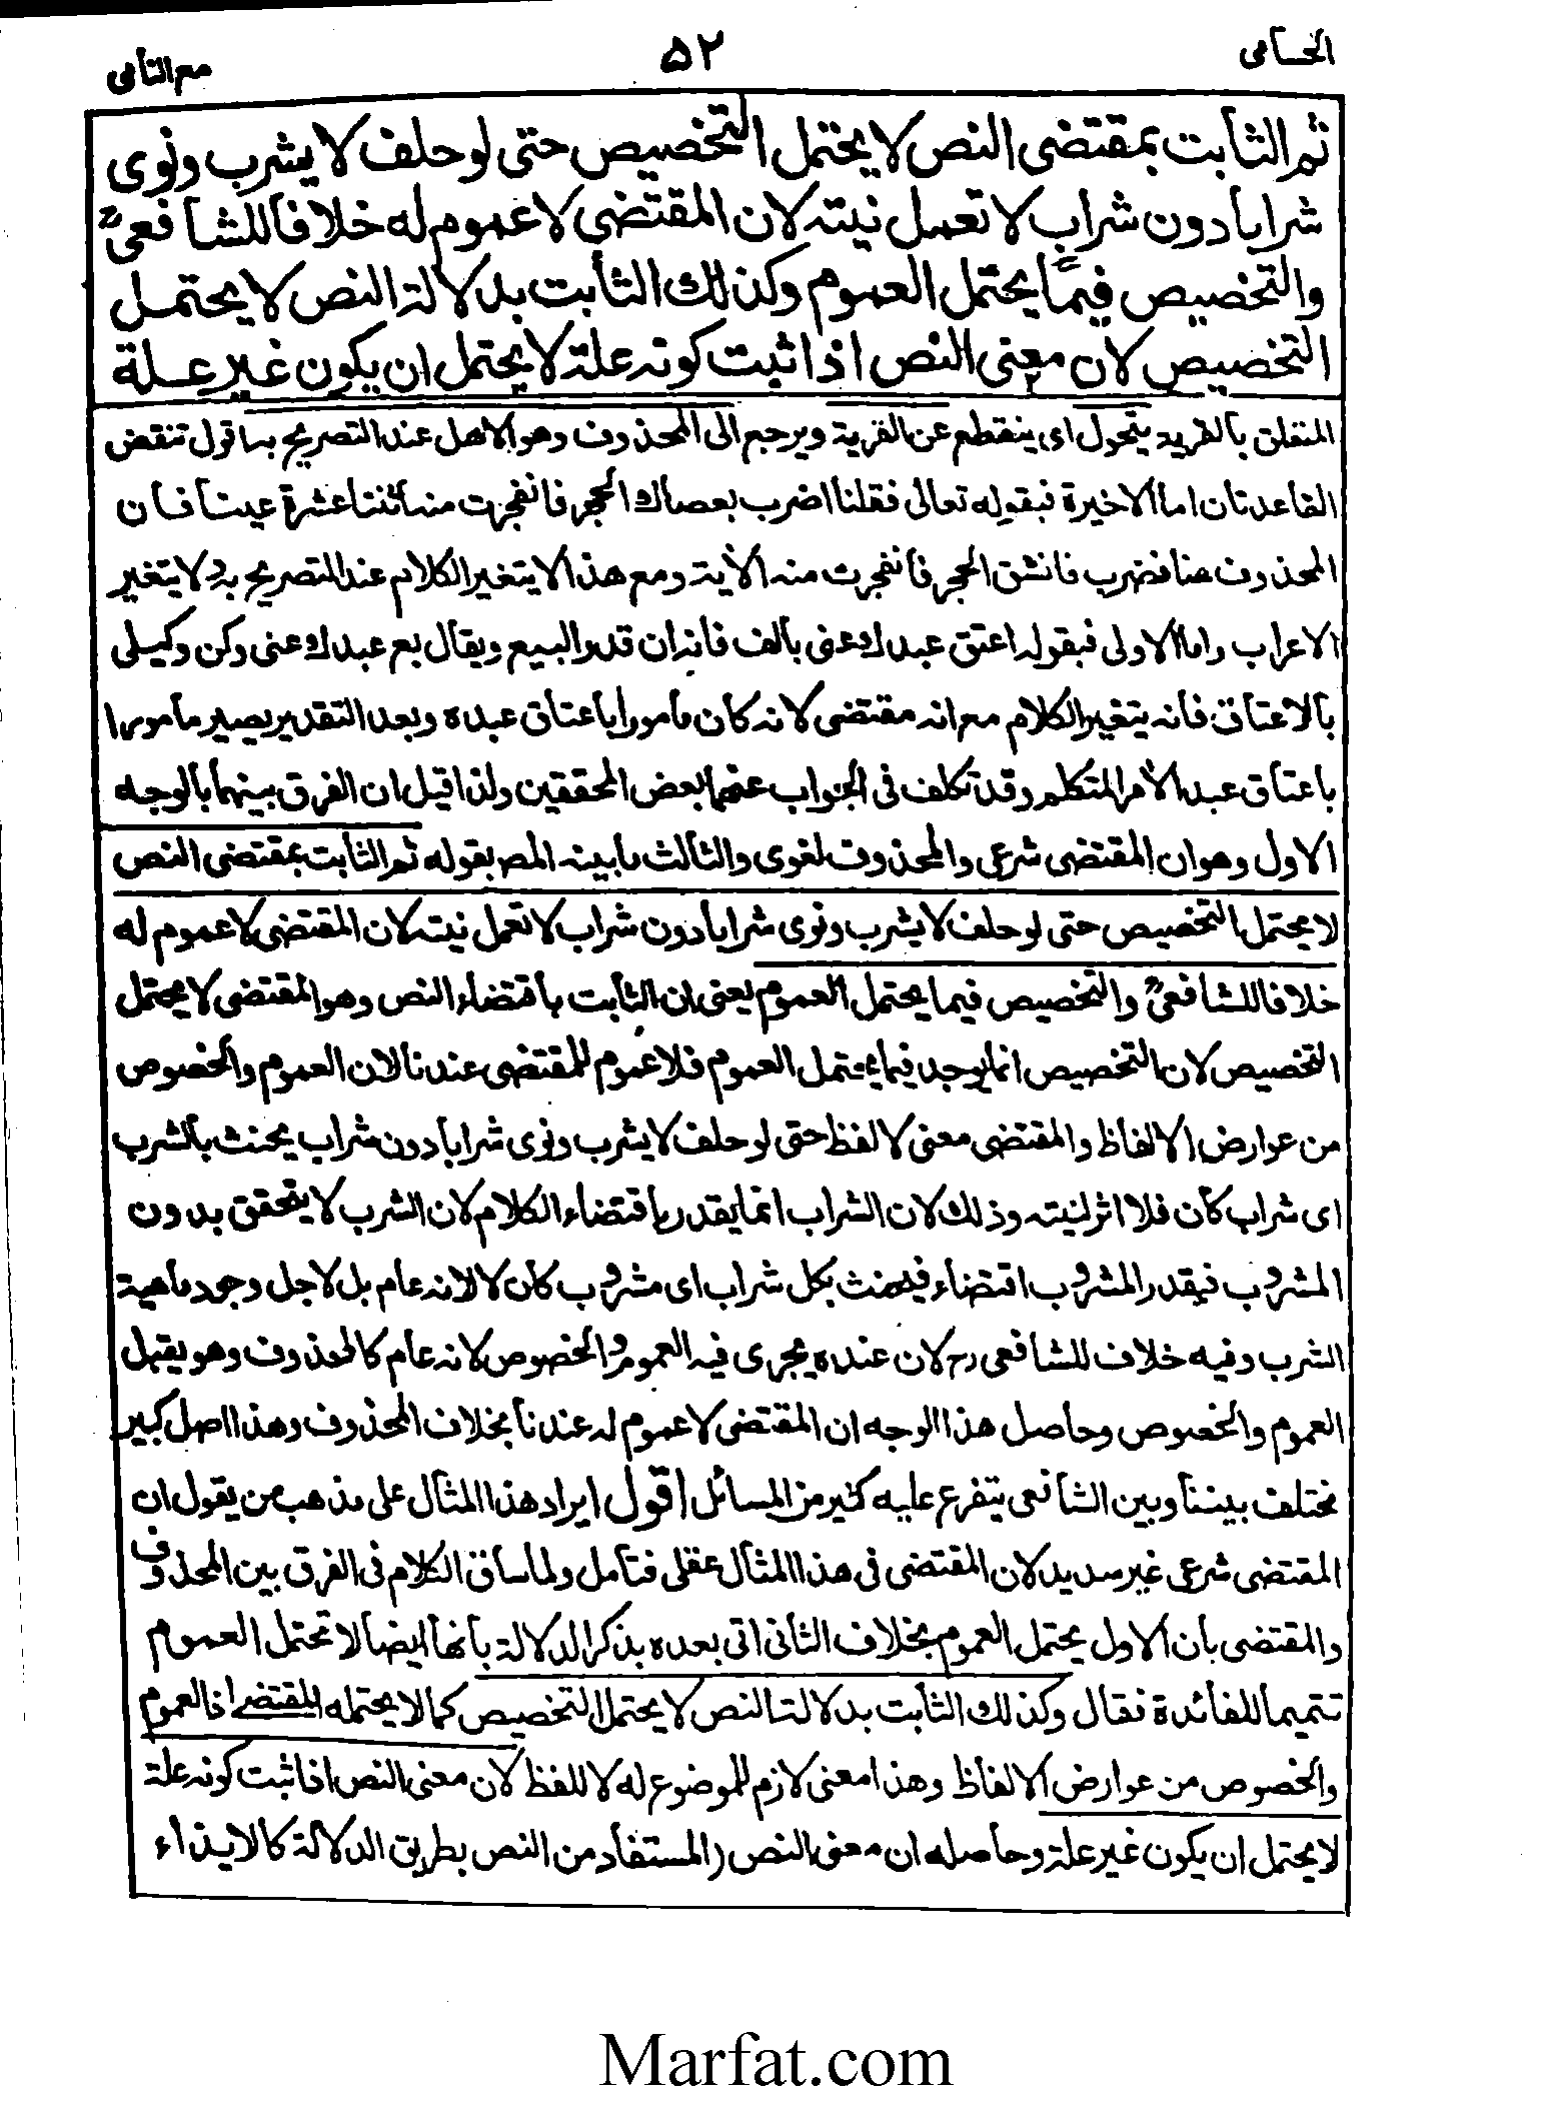 الحسامى
۵۲
مع النامى
ثم الثابت بمقتضى النص لا يحتمل التخصيص حتى لو حلف لا يشرب ونوى
شرابا دون شراب لا تعمل نيته لان المقتضى لا عموم له خلافا للشافعىؒ
والتخصيص فيما يحتمل العموم وكذلك الثابت بدلالة النص لا يحتمل
التخصيص لان معنى النص اذا ثبت كونه علة لا يحتمل ان يكون غير علة
المتعلق بالقرية يتحول اى ينقطع عن القرية ويرجع الى المحذوف وهو الاهل عند التصريح به اقول تنقض
القاعدتان اما الاخيرة فبقوله تعالى فقلنا اضرب بعصاك الحجر فانفجرت منه اثنتا عشرة عينا فان
المحذوف هنا فضرب فانشق الحجر فانفجرت منه الأية ومع هذا لا يتغير الكلام عند التصريح به ولا يتغير
الاعراب واما الاولى فبقوله اعتق عبدك عنى بالف فانه ان قدر البيع ويقال بع عبدك عنى وكن وكيلى
بالاعتاق فانه يتغير الكلام مع انه مقتضى لانه كان مأمورا باعتاق عبده وبعد التقدير يصير مأمورا
باعتاق عبد الأمر المتكلم وقد تكلف فى الجواب عنهما بعض المحققين ولذا قيل ان الفرق بينهما بالوجه
الاول وهو ان المقتضى شرعى والمحذوف لغوى والثالث ما بينه المص بقوله ثم الثابت بمقتضى النص
لا يحتمل التخصيص حتى لو حلف لا يشرب ونوى شرابا دون شراب لا تعمل نيته لان المقتضى لا عموم له
خلافا للشافعىؒ والتخصيص فيما يحتمل العموم يعنى ان الثابت باقتضاء النص وهو المقتضى لا يحتمل
التخصيص لان التخصيص انما يوجد فيما يحتمل العموم فلا عموم للمقتضى عندنا لان العموم والخصوص
من عوارض الالفاظ والمقتضى معنى لا لفظ حتى لو حلف لا يشرب ونوى شرابا دون شراب يحنث بالشرب
اى شراب كان فلا اثر لنيته وذلك لان الشراب انما يقدر باقتضاء الكلام لان الشرب لا يتحقق بدون
المشروب فيقدر المشروب اقتضاء فيحنث بكل شراب اى مشروب كان لا لانه عام بل لاجل وجود ماهية
الشرب وفيه خلاف للشافعى رح لان عنده يجرى فيه العموم والخصوص لانه عام كالمحذوف وهو يقبل
العموم والخصوص وحاصل هذا الوجه ان المقتضى لا عموم له عندنا بخلاف المحذوف وهذا اصل كبير
مختلف بيننا وبين الشافعى يتفرع عليه كثير من المسائل اقول ايراد هذا المثال على مذهب من يقول ان
المقتضى شرعى غير سديد لان المقتضى فى هذا المثال عقلى فتأمل ولما ساق الكلام فى الفرق بين المحذوف
والمقتضى بان الاول يحتمل العموم بخلاف الثانى اتى بعده بذكر الدلالة بانها ايضا لا تحتمل العموم
تتميما للفائدة فقال وكذلك الثابت بدلالة النص لا يحتمل التخصيص كما لا يحتمله المقتضى اذ العموم
والخصوص من عوارض الالفاظ وهذا معنى لازم للموضوع له لا للفظ لان معنى النص اذا ثبت كونه علة
لا يحتمل ان يكون غير علة وحاصله ان معنى النص (المستفاد من النص بطريق الدلالة كالايذاء
Marfat.com